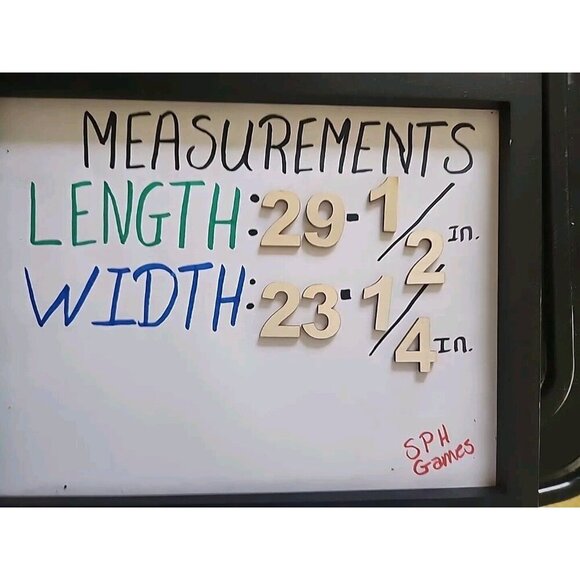 MEASUREMENTS
LENGTH: 29-1/2 In.
WIDTH: 23-1/4 In.
SPH
Games